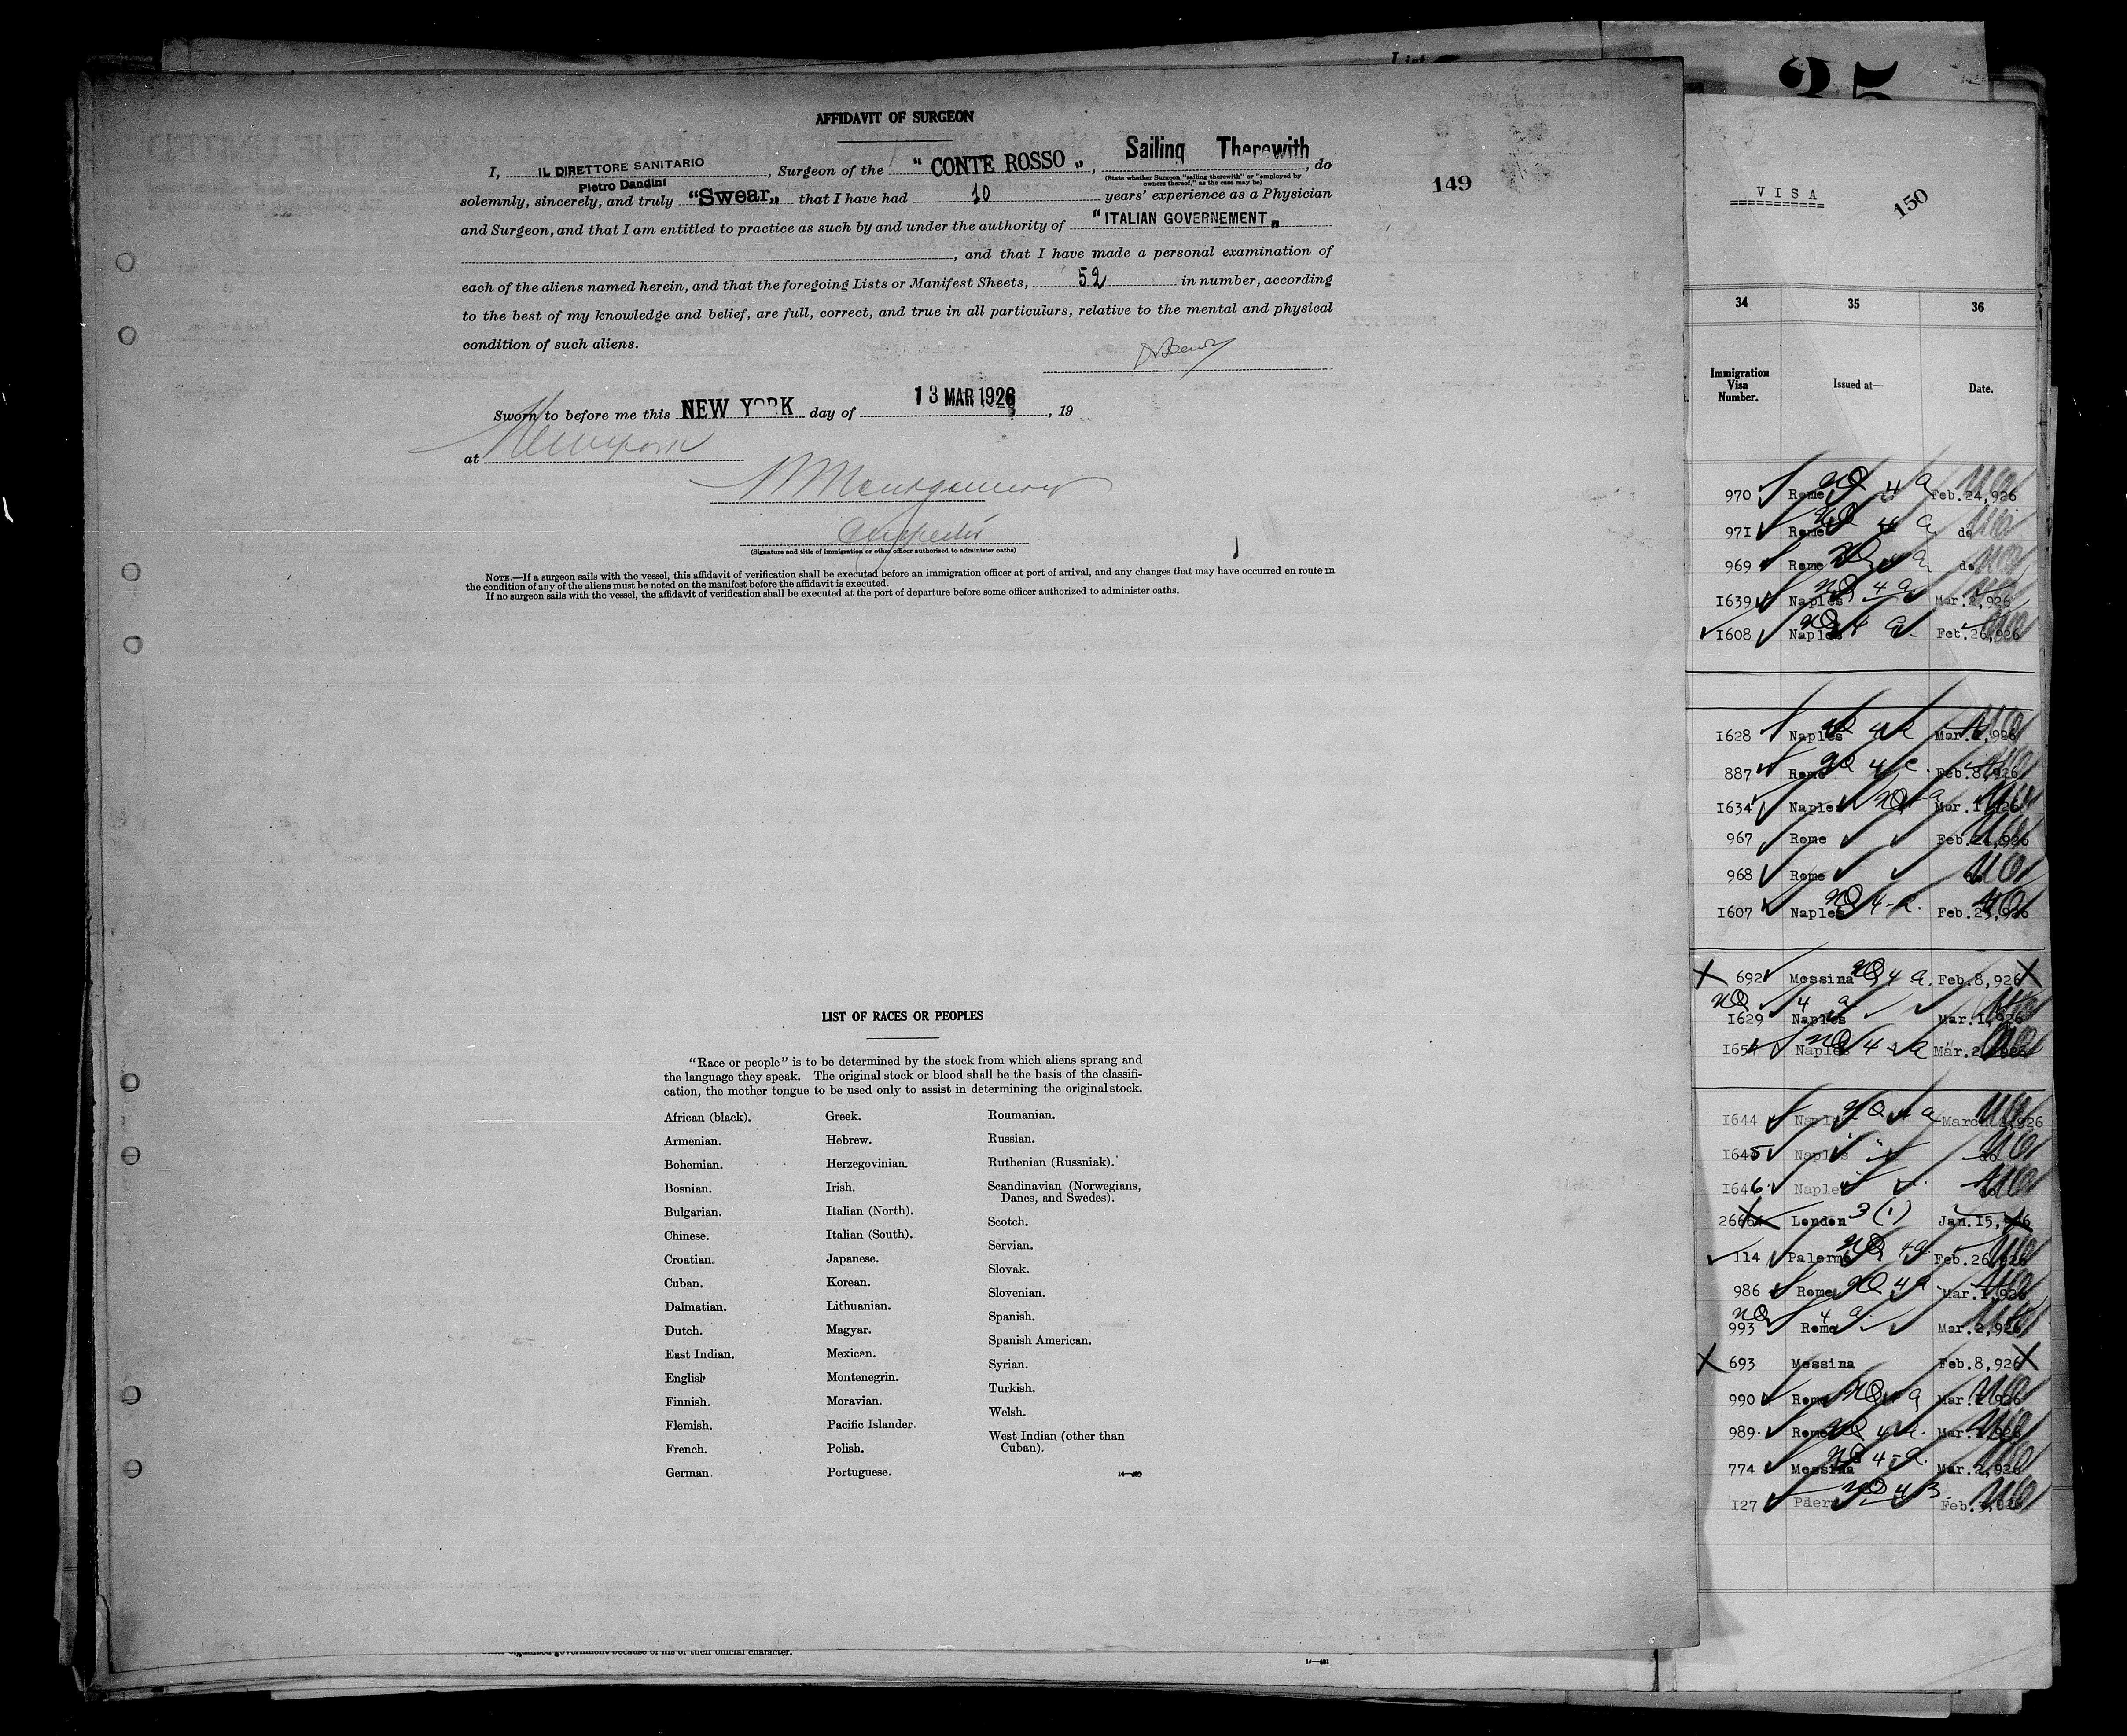 AFFIDAVIT OF SURGEON
I, IL DIRETTORE SANITARIO, Surgeon of the "CONTE ROSSO", Sailing Therewith, do
Pietro Dandini
(State whether Surgeon "sailing therewith" or "employed by
owners thereof," as the case may be)
solemnly, sincerely, and truly "Swear" that I have had 10 years' experience as a Physician
and Surgeon, and that I am entitled to practice as such by and under the authority of "ITALIAN GOVERNEMENT"
, and that I have made a personal examination of
each of the aliens named herein, and that the foregoing Lists or Manifest Sheets, 52 in number, according
to the best of my knowledge and belief, are full, correct, and true in all particulars, relative to the mental and physical
condition of such aliens.
Sworn to before me this NEW YORK day of 13 MAR 1926, 19
at New York
Montgomery
Inspector
(Signature and title of immigration or other officer authorized to administer oaths)
NOTE.—If a surgeon sails with the vessel, this affidavit of verification shall be executed before an immigration officer at port of arrival, and any changes that may have occurred en route in
the condition of any of the aliens must be noted on the manifest before the affidavit is executed.
If no surgeon sails with the vessel, the affidavit of verification shall be executed at the port of departure before some officer authorized to administer oaths.
149
LIST OF RACES OR PEOPLES
"Race or people" is to be determined by the stock from which aliens sprang and
the language they speak. The original stock or blood shall be the basis of the classifi-
cation, the mother tongue to be used only to assist in determining the original stock.
African (black).
Armenian.
Bohemian.
Bosnian.
Bulgarian.
Chinese.
Croatian.
Cuban.
Dalmatian.
Dutch.
East Indian.
English
Finnish.
Flemish.
French.
German
Greek.
Hebrew.
Herzegovinian.
Irish.
Italian (North).
Italian (South).
Japanese.
Korean.
Lithuanian.
Magyar.
Mexican.
Montenegrin.
Moravian.
Pacific Islander.
Polish.
Portuguese.
Roumanian.
Russian.
Ruthenian (Russniak).
Scandinavian (Norwegians,
Danes, and Swedes).
Scotch.
Servian.
Slovak.
Slovenian.
Spanish.
Spanish American.
Syrian.
Turkish.
Welsh.
West Indian (other than
Cuban).
organized government because of his or their official character.
35
VISA
150
34 35 36
Immigration
Visa
Number.
Issued at—
Date.
970 Rome NQ 4 a Feb.24,926
971 Rome NQ 4 a do
969 Rome NQ 4 a do
I639 Naples NQ 4 a Mar.2,926
I608 Naples NQ 4 a Feb.26,926
I628 Naples NQ 4 a Mar.1,926
887 Rome NQ 4 c Feb.8,926
I634 Naples NQ 4 a Mar.1,926
967 Rome Feb.24,926
968 Rome do
I607 Naples NQ 4-a. Feb.2,926
X 692 Messina NQ 4 a. Feb.8,926 X
NQ 4 a
I629 Naples Mar.1,926
I65 Naples NQ 4 a Mar.2,926
I644 Naples NQ 4 a March 2,926
I645 Naples " " do
I646 Naples do
2666 London 3(1) Jan.15,926
114 Palermo NQ 4 a Feb.26,926
986 Rome NQ 4 a Mar.1,926
NQ 4 a
993 Rome Mar.2,926
X 693 Messina Feb.8,926 X
990 Rome NQ 4 a Mar.2,926
989 Rome NQ 4 a. Mar.2,926
774 Messina NQ 4-a. Mar.2,926
I27 Paer NQ 4 3 Feb.